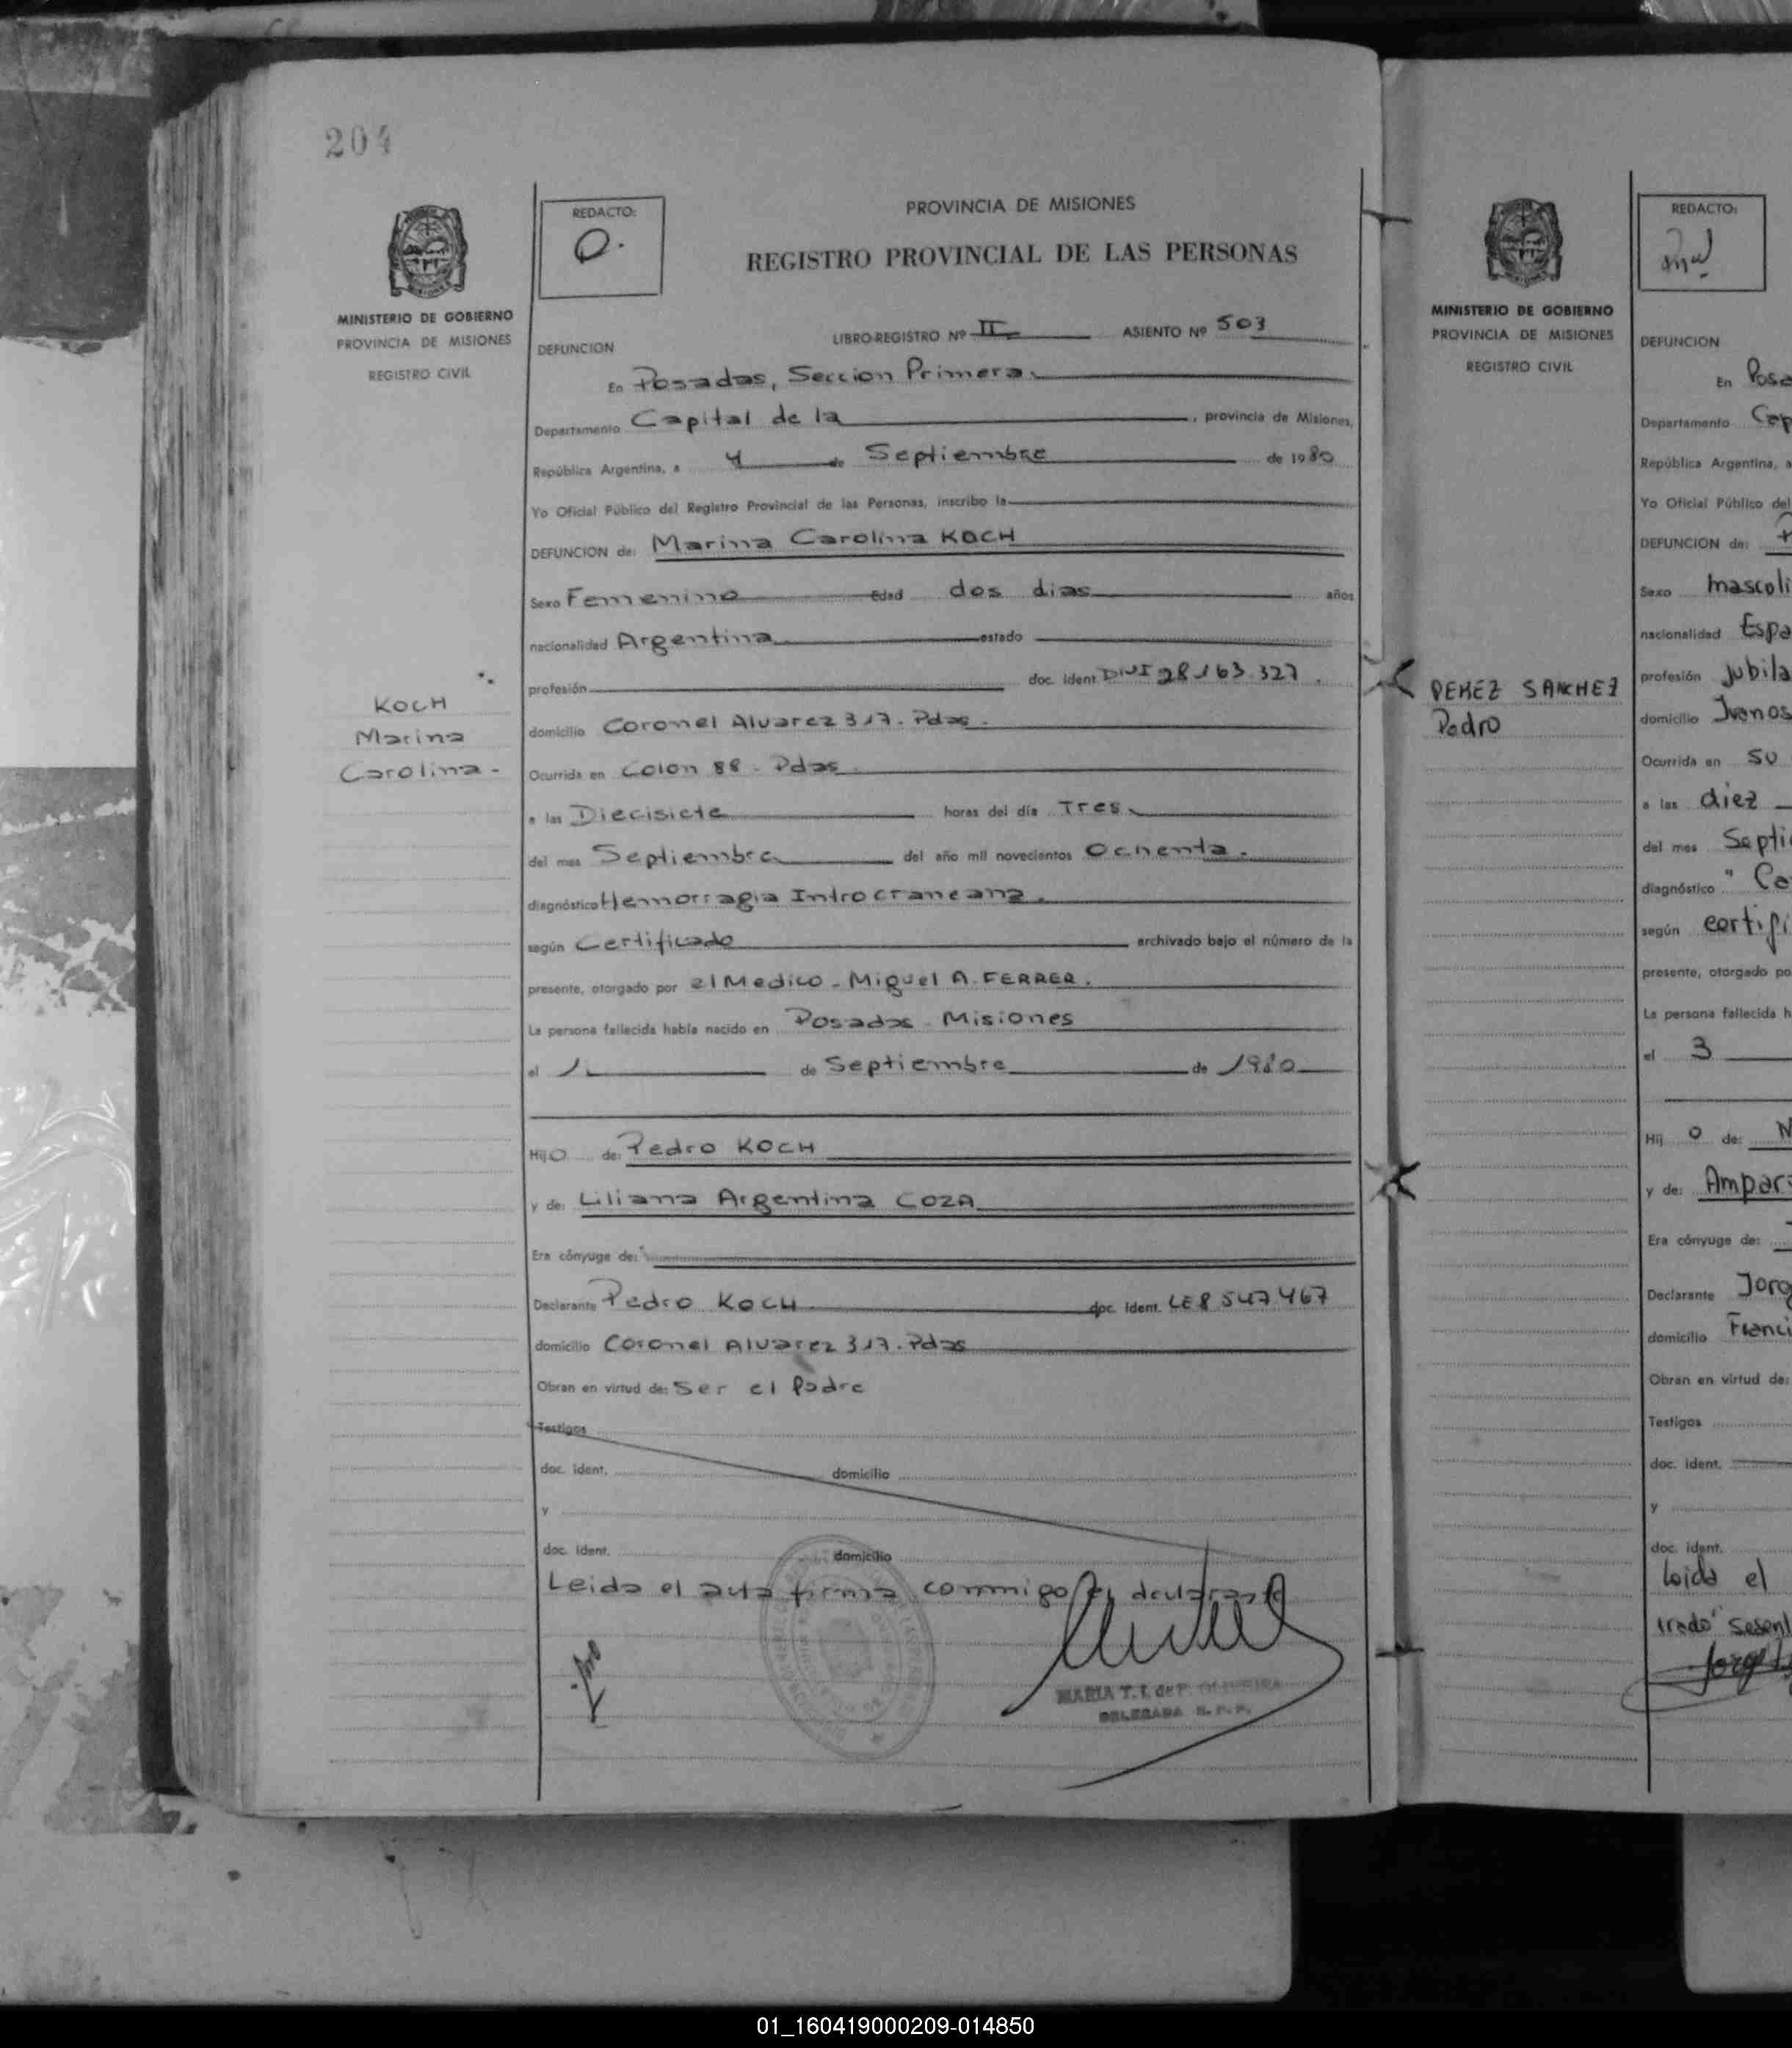 204
MINISTERIO DE GOBIERNO
PROVINCIA DE MISIONES
REGISTRO CIVIL
KOCH
Marina
Carolina -
REDACTO:
O.
PROVINCIA DE MISIONES
REGISTRO PROVINCIAL DE LAS PERSONAS
LIBRO-REGISTRO Nº II ASIENTO Nº 503
DEFUNCION
En Posadas, Seccion Primera.
Departamento Capital de la , provincia de Misiones,
República Argentina, a 4 de Septiembre de 1980
Yo Oficial Público del Registro Provincial de las Personas, inscribo la
DEFUNCION de: Marina Carolina KOCH
Sexo Femenino Edad dos dias años
nacionalidad Argentina estado
profesión doc. ident. DNI 28.163.327.
domicilio Coronel Alvarez 317. Pdas.
Ocurrida en Colon 88 - Pdas
a las Diecisiete horas del día Tres
del mes Septiembre del año mil novecientos Ochenta.
diagnóstico Hemorragia Introcraneana.
según Certificado archivado bajo el número de la
presente, otorgado por el Medico - Miguel A. FERRER.
La persona fallecida había nacido en Posadas - Misiones
el 1 de Septiembre de 1980
Hij o de: Pedro KOCH
y de: Liliana Argentina COZA
Era cónyuge de:
Declarante Pedro KOCH doc. ident. LE 8547467
domicilio Coronel Alvarez 317. Pdas
Obran en virtud de: Ser el Padre
Testigos
doc. ident. domicilio
y
doc. ident. domicilio
Leida el acta firma conmigo el declarante
MARIA T. I. de P. OLIVEIRA
DELEGADA R. P. P.
MINISTERIO DE GOBIERNO
PROVINCIA DE MISIONES
REGISTRO CIVIL
PEREZ SANCHEZ
Pedro
REDACTO:
DEFUNCION
En Posa
Departamento Cap
República Argentina, a
Yo Oficial Público del
DEFUNCION de: P
Sexo mascoli
nacionalidad Espa
profesión Jubila
domicilio Ivanos
Ocurrida en su
a las diez
del mes Septi
diagnóstico " Ca
según certifi
presente, otorgado po
La persona fallecida h
el 3
Hij o de: N
y de: Ampar
Era cónyuge de:
Declarante Jorg
domicilio Franci
Obran en virtud de:
Testigos
doc. ident.
y
doc. ident.
Leida el
trado" sesent
Jorge
01_160419000209-014850